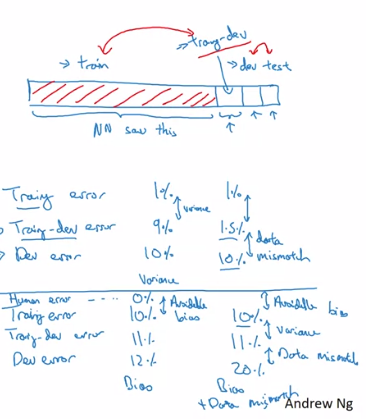 → train
→ train-dev
→ dev test
NN saw this
Training error 1% 1%
variance
Training-dev error 9% 1.5%
data mismatch
→ Dev error 10% 10%
Variance
Human error ---- 0% Avoidable bias
Avoidable bias
Training error 10% 10%
variance
Training-dev error 11% 11%
Data mismatch
Dev error 12% 20%
Bias Bias
+ Data mismatch
Andrew Ng